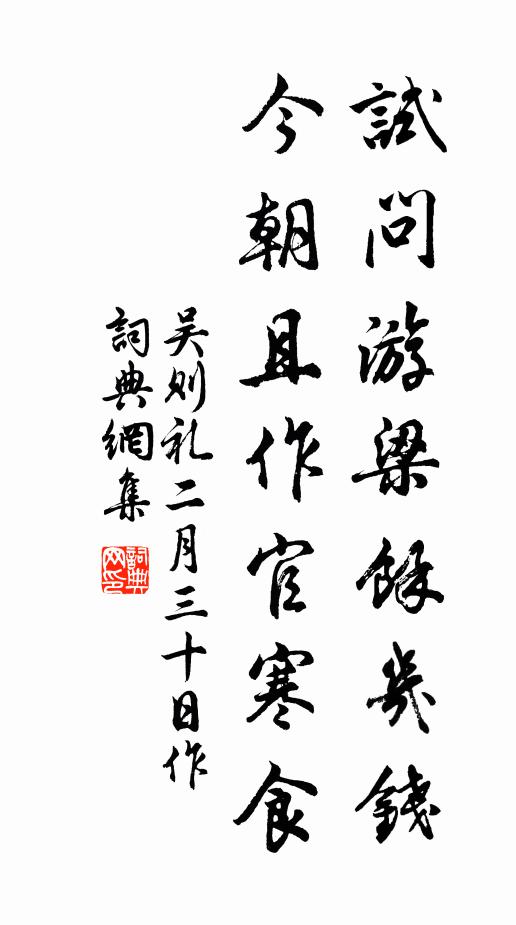 試問游梁餘幾錢
今朝且作官寒食
吴則礼二月三十日作
詞典網集
詞典网印